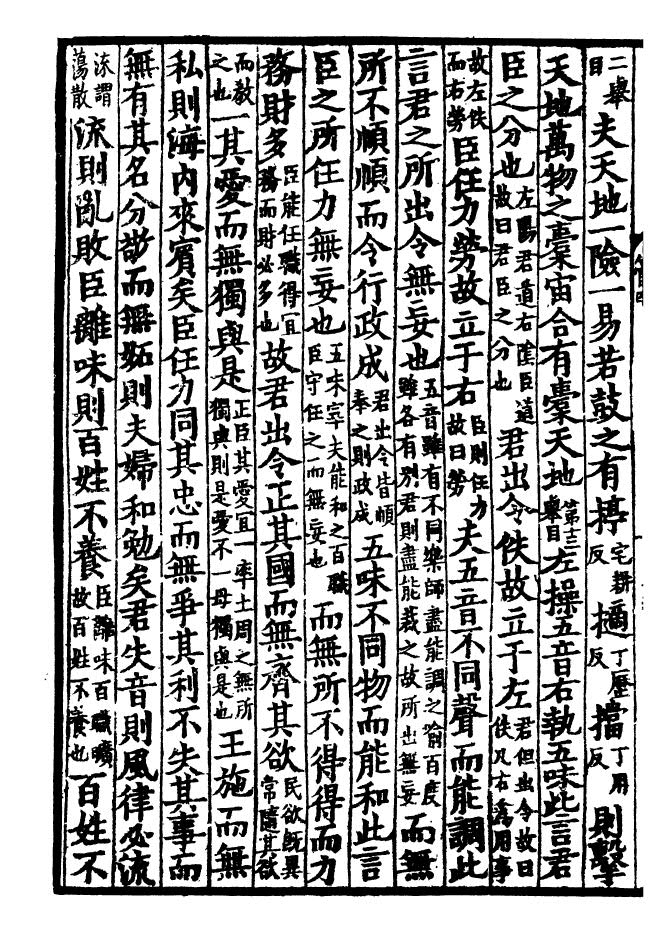 二舉目夫天地一險一易若鼓之有揨宅耕反擿丁歷反擋丁用反則擊
天地萬物之橐宙合有橐天地第十三舉目左操五音右執五味此言君
臣之分也左陽君道右陰臣道故曰君臣之分也君出令佚故立于左君但出令故曰佚凡右爲用事
故左佚而右勞臣任力勞故立于右臣則任力故曰勞夫五音不同聲而能調此
言君之所出令無妄也五音雖有不同樂師盡能調之喻百度雖各有別君則盡能裁之故所出無妄而無
所不順順而令行政成君出令皆順奉之則政成五味不同物而能和此言
臣之所任力無妄也五味宰夫能和之百職臣守任之而無妄也而無所不得得而力
務財多臣能任職得宜務而財必多也故君出令正其國而無齊其欲民欲旣異常隨其欲
而教之也一其愛而無獨與是正臣其愛宜一率土周之無所獨與則是愛不一毋獨與是也王施而無
私則海內來賓矣臣任力同其忠而無爭其利不失其事而
無有其名分敬而無妬則夫婦和勉矣君失音則風律必流
流謂蕩散流則亂敗臣離味則百姓不養臣離味百職曠故百姓不養也百姓不